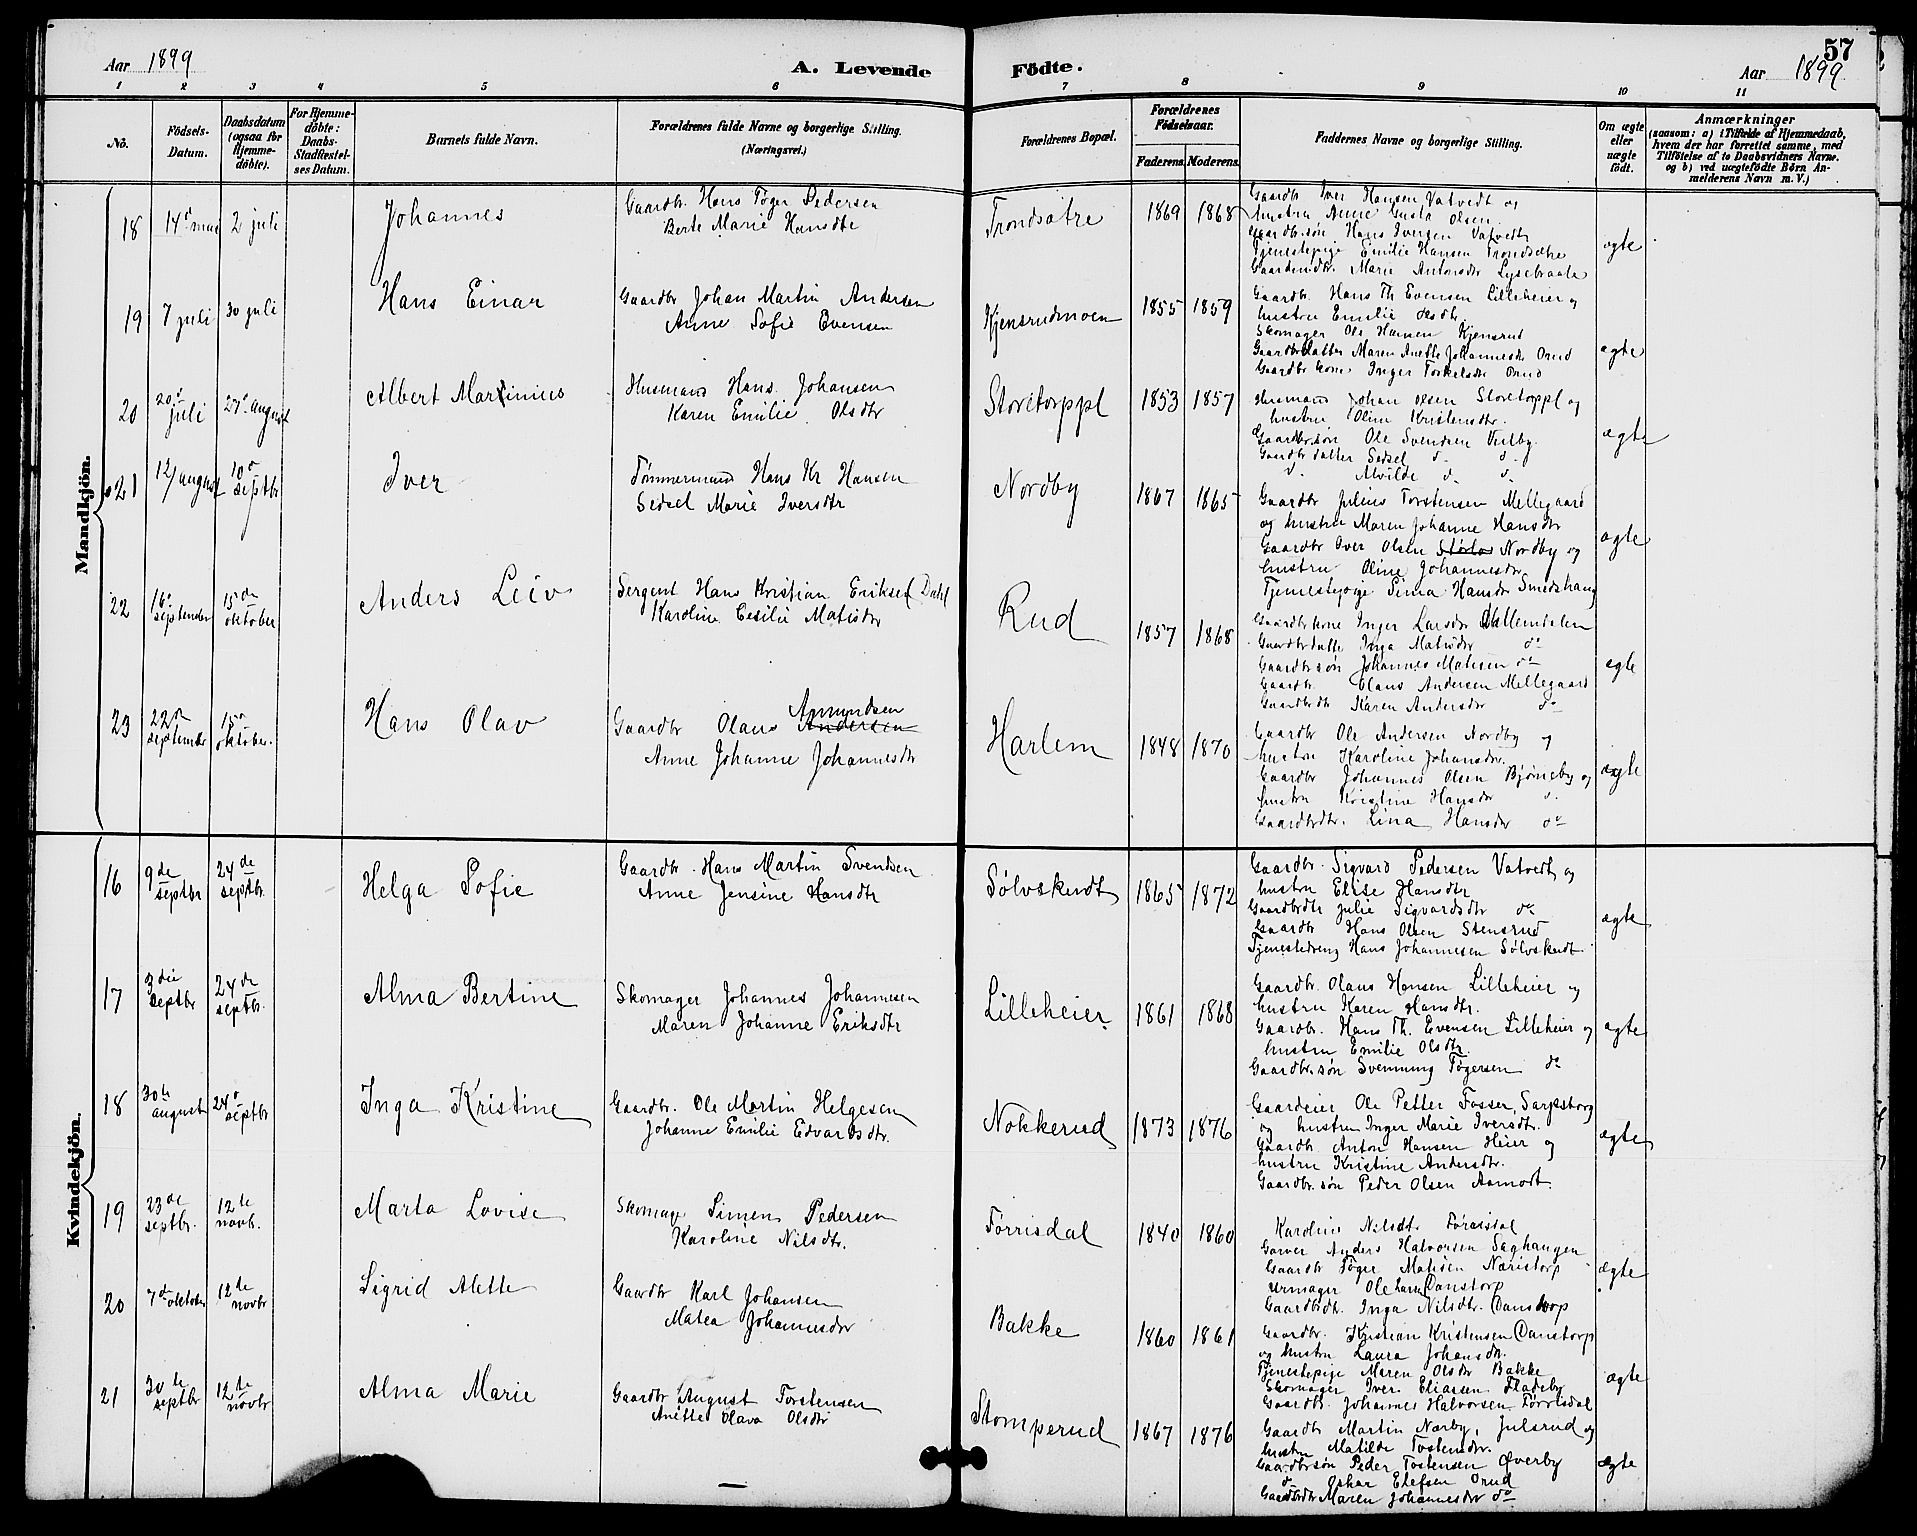 57
Aar 1899 A. Levende Födte. Aar 1899
1 2 3 4 5 6 7 8 9 10 11
No. Födsels-Datum. Daabsdatum (ogsaa for Hjemmedöbte). For Hjemmedöbte: Daabs-Stadfæstelses Datum. Barnets fulde Navn. Forældrenes fulde Navne og borgerlige Stilling. (Næringsvei.) Forældrenes Bopæl. Forældrenes Födselsaar. Faderens. Moderens. Faddernes Navne og borgerlige Stilling. Om ægte eller uægte födt. Anmærkninger (saasom: a) i Tilfælde af Hjemmedaab, hvem der har forrettet samme, med Tilföielse af to Daabsvidners Navne. og b) ved uægtefödte Börn Anmelderens Navn m. V.)
Mandkjön.
18 14de mai 2 juli Johannes Gaardbr. Hans Tøger Pedersen
Berte Marie Hansdtr
Trondsætre 1869 1868
Gaardbr Iver Hansen Vatvedt og
hustru Anne Gusta Olsen
Gaardbr.søn Hans Iversen Vatvedt
Tjenestepige Emilie Hansen Trondsætre
Marie Antonsdtr Lysebraate
ægte
19 7 juli 30 juli Hans Einar Gaardbr Johan Martin Andersen
Anne Sofie Evensen
Kjensrudmoen 1855 1859
Gaardbr. Hans Th. Evensen Lilleheier og
hustru Emilie Olsdtr.
Skomager Ole Hansen Kjensrud
Gaardbrdatter Maren Anette Johannesdtr Orud
Gaardbr.kone Inger Torkelsdtr Orud
ægte
20 20de juli 27de august Albert Martinius Husmand Hans Johansen
Karen Emilie Olsdtr
Storetorppl 1853 1857
Husmand Johan Olsen Storetorppl og
hustru Oline Kristensdtr.
Gaardbr.søn Ole Svendsen
Gaardbr datter Sedsel d. d.
d. Alvilde d. d.
ægte
21 12/ august 10de septbr Iver Tømmermand Hans Kr Hansen
Sedsel Marie Iversdtr
Nordby 1867 1865
Gaardbr Julius Torstensen Mellegaard
og hustru Maren Johanne Hansdtr
Gaardbr Iver Olsen Nordby og
hustru Oline Johannesdtr
Tjenestepige Sina Hansdtr Smedshaug
ægte
22 16de september 15de oktober Anders Leiv Sergent Hans Kristian Eriksen Dahl
Karoline Cesilie Matisdtr
Rud 1857 1868
Gaardbr.kone Inger Larsdtr
Gaardbrdatter Inga Matisdtr do
Gaardbr.søn Johannes Matisen do
Gaardbr. Olaus Andersen Mellegaard
Gaardbrdtr Karen Andersdtr do
ægte
23 22de september 15de oktober. Hans Olav Gaardbr Olaus Andersen Amundsen
Anne Johanne Johannesdtr
Harlem 1848 1870
Gaardbr Ole Andersen Nordby og
hustru Karoline Johansdtr.
Gaardbr Johannes Olsen Bjørneby og
hustru Kristine Hansdtr d.
Gaardbrdtr. Lina Hansdtr do
ægte
Kvindekjön.
16 9de septbr 24de septbr. Helga Sofie Gaardbr. Hans Martin Svendsen
Anne Jensine Hansdtr
Sølvskudt 1865 1872
Gaardbr. Sigvard Pedersen Vatvedt og
hustru Elise Hansdtr
Gaardbrdtr Julie Sigvardsdtr do
Gaardbr Hans Olsen Stensrud
Tjenestedreng Hans Johannesen Sølvskudt
ægte
17 3die septbr 24de septbr. Alma Bertine Skomager Johannes Johannesen
Maren Johanne Eriksdtr
Lilleheier. 1861 1868
Gaardbr. Olaus Hansen Lilleheier og
hustru Karen Hansdtr.
Gaardbr. Hans Th. Evensen Lilleheier og
hustru Emilie Olsdtr.
Gaardbr.søn Svenning Tøgersen do
ægte
18 30te august 24de septbr Inga Kristine Gaardbr. Ole Martin Helgesen
Johanne Emilie Edvardsdtr.
Nokkerud 1873 1876
Gaardeier Ole Petter Fosser, Sarpsborg
og hustru Inger Marie Iversdtr.
Gaardbr. Anton Hansen Heier og
hustru Kristine Andersdtr.
Gaardbr.søn Peder Olsen Aamodt.
ægte
19 23de septbr. 12te novb. Marta Lovise Skomag Simen Pedersen
Karoline Nilsdtr.
Førrisdal 1840 1860
Karoline Nilsdtr Førrisdal
Garver Anders Halvorsen Saghaugen
Gaardbr Tøger Matisen Næristorp
Urmager Ole Larsen Danstorp
Gaardbrdtr. Inga Nilsdtr. Danstorp
ægte
20 7de oktober 12te novbr Sigrid Alette Gaardbr Karl Johansen
Matea Johannesdtr
Bakke 1860 1861
Gaardbr. Kristian Kristensen Danstorp
og hustru Laura Johansdtr.
Tjenestepige Maren Olsdtr Bakke
Skomager Iver Eliasen Fladeby
Gaardbr. Johannes Halvorsen Førrisdal
ægte
21 30te septbr 12te novbr Alma Marie Gaardbr August Torstensen
Anette Olava Olsdtr
Stomperud 1867 1876
Gaardbr Martin Nærby, Julsrud og
hustru Matilde Tostensdtr.
Gaardbrsøn Peder Tostensen Øverby
d. Oskar Elefsen Orud
Gaardbrdtr Maren Johannesdtr do
ægte